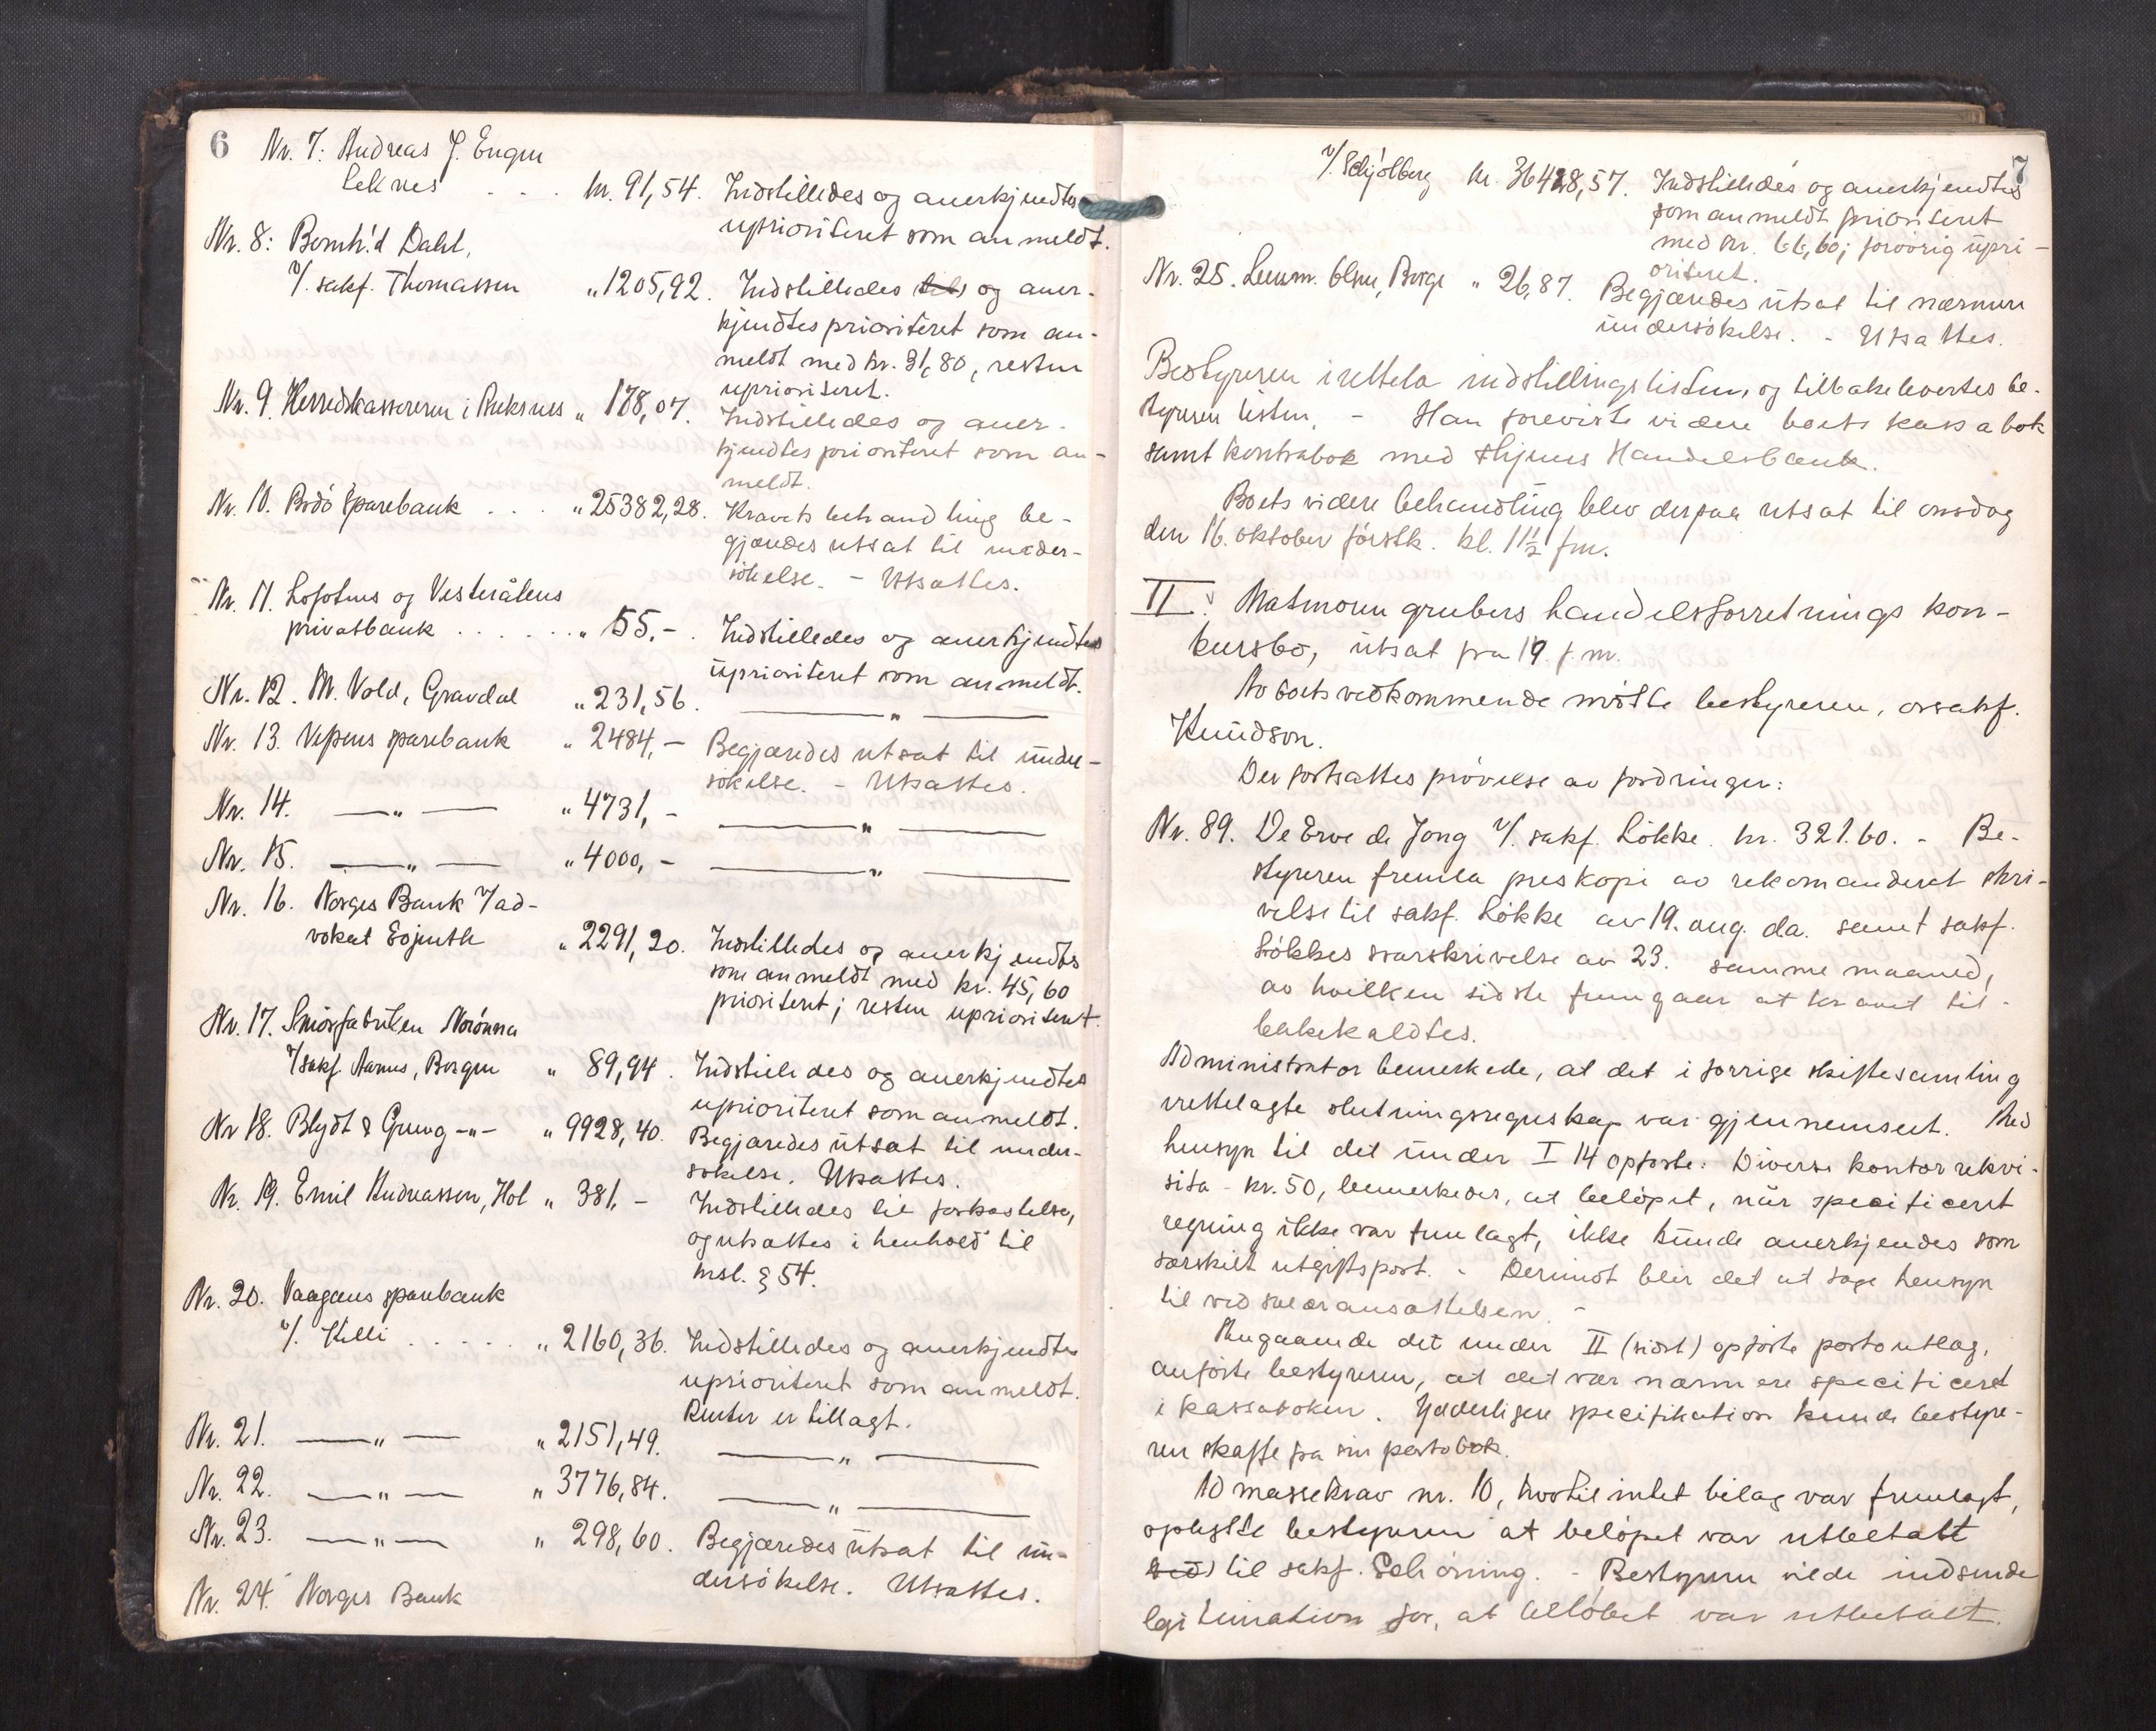 6
Nr. 7: Andreas J. Engen
Leknes . . . kr. 91,54. Indstilledes og anerkjendtes
uprioriteret som anmeldt.
Nr. 8: Bernh. Dahl,
v/. sakf. Thomassen „ 1205,92. Indstilledes og aner-
kjendtes prioriteret som an-
meldt med kr. 31,80, resten
uprioriteret.
Nr. 9. Herredskassereren i Buksnes „ 178,07. Indstilledes og aner-
kjendtes prioriteret som an-
meldt.
Nr. 10. Bodö Sparebank . . . „ 25382,28. Kravets behandling be-
gjæredes utsat til under-
sökelse. - Utsattes.
Nr. 11. Lofotens og Vesterålens
privatbank . . . . . . „ 55.- . Indstilledes og anerkjendtes
uprioriteret som anmeldt.
Nr. 12. M. Vold, Gravdal „ 231,56. —„—
Nr. 13. Vefsens sparebank „ 2484,- Begjæredes utsat til under-
sökelse. - Utsattes.
Nr. 14. —„— „ 4731,- —„—
Nr. 15. —„— „ 4000,- —„—
Nr. 16. Norges Bank v/ ad-
vokat Egenth „ 2291,20. Indstilledes og anerkjendtes
som anmeldt med kr. 45,60
prioriteret; resten uprioriteret.
Nr. 17. Smörfabriken Norönna
v/ sakf. Aarnes, Bergen „ 89,94. Indstilledes og anerkjendtes
uprioriteret som anmeldt.
Nr 18. Blydt & Greveg -„- „ 9928,40. Begjæredes utsat til under-
sökelse. Utsattes.
Nr. 19. Emil Andreassen, Hol „ 381,- Indstilledes til forkastelse,
og utsattes i henhold til
kksl. § 54.
Nr. 20. Vaagans sparebank
v/. Killi . . . . . „ 2160,36. Indstilledes og anerkjendtes
uprioriteret som anmeldt.
Renter er tillagt.
Nr. 21. —„— „ 2151,49. —„—
Nr. 22. —„— „ 3776,84. —„—
Nr. 23. —„— „ 298,60. Begjæredes utsat til un-
dersökelse. Utsattes.
Nr. 24. Norges Bank
7
v/. Schjölberg kr. 36428,57. Indstilledes og anerkjendtes
som anmeldt prioriteret
med kr. 66,60; forövrig upri-
oriteret.
Nr. 25. Lensm. Olsen, Borge „ 26,87. Begjæredes utsat til nærmere
undersökelse. - Utsattes.
Bestyreren irettela indstillingslisten, og tilbakelevertes be-
styreren listen. - Han foreviste videre boets kassabok
samt kontrabok med Thjems Handelsbank.
Boets videre behandling blev derpaa utsat til onsdag
den 16. oktober förstk. kl. 11½ fm.
II. Matmoren grubers handelsforretnings kon-
kursbo, utsat fra 19. f. m.
Av boets vedkommende mötte bestyreren, orsakf.
Knudson.
Der fortsattes prövelse av fordringer:
Nr. 89. De Erve de Jong v/. sakf. Lökke. kr. 321.60. - Be-
styreren fremla preskopi av rekomanderet skri-
velse til sakf. Lökke av 19. aug. da. samt sakf.
Lökkes svarskrivelse av 23. samme maaned,
av hvilken sidste fremgaar at kravet til-
bakekaldtes.
Administrator bemerkede, at det i forrige skiftesamling
irettelagte slutningsregnskap var gjennemseet. Med
hensyn til det under I 14 opförte: Diverse kontorrekvi-
sita - kr. 50, bemerkedes, at belöpet, når specificeret
regning ikke var fremlagt, ikke kunde anerkjendes som
særskilt utgiftspost. - Derimot blir det at tage hensyn
til ved salæransættelsen. -
Angaaende det under II (sidst) opförte portoutlag,
anförte bestyreren, at det var nærmere specificeret
i kassaboken. Yderligere specifikation kunde bestyre-
ren skaffe fra sin portobok.
Ad massekrav nr. 10, hvortil intet bilag var fremlagt,
oplyste bestyreren at belöpet var utbetalt
til sakf. Schöning. - Bestyreren vilde indsende
legitimation for, at belöbet var utbetalt.